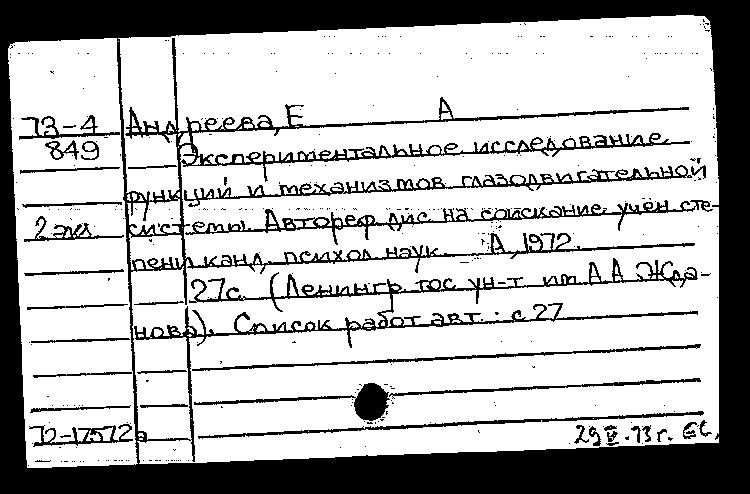 73-4 Андреева, Е А
849 Экспериментальное исследование
функций и механизмов глазодвигательной
2 экз. системы. Автореф дис на соискание учен сте-
пени канд. психол наук. Л, 1972.
27с. (Ленингр гос ун-т им А А Жда-
нова). Список работ авт.: с 27
72-17572а
29 г. ЕС.